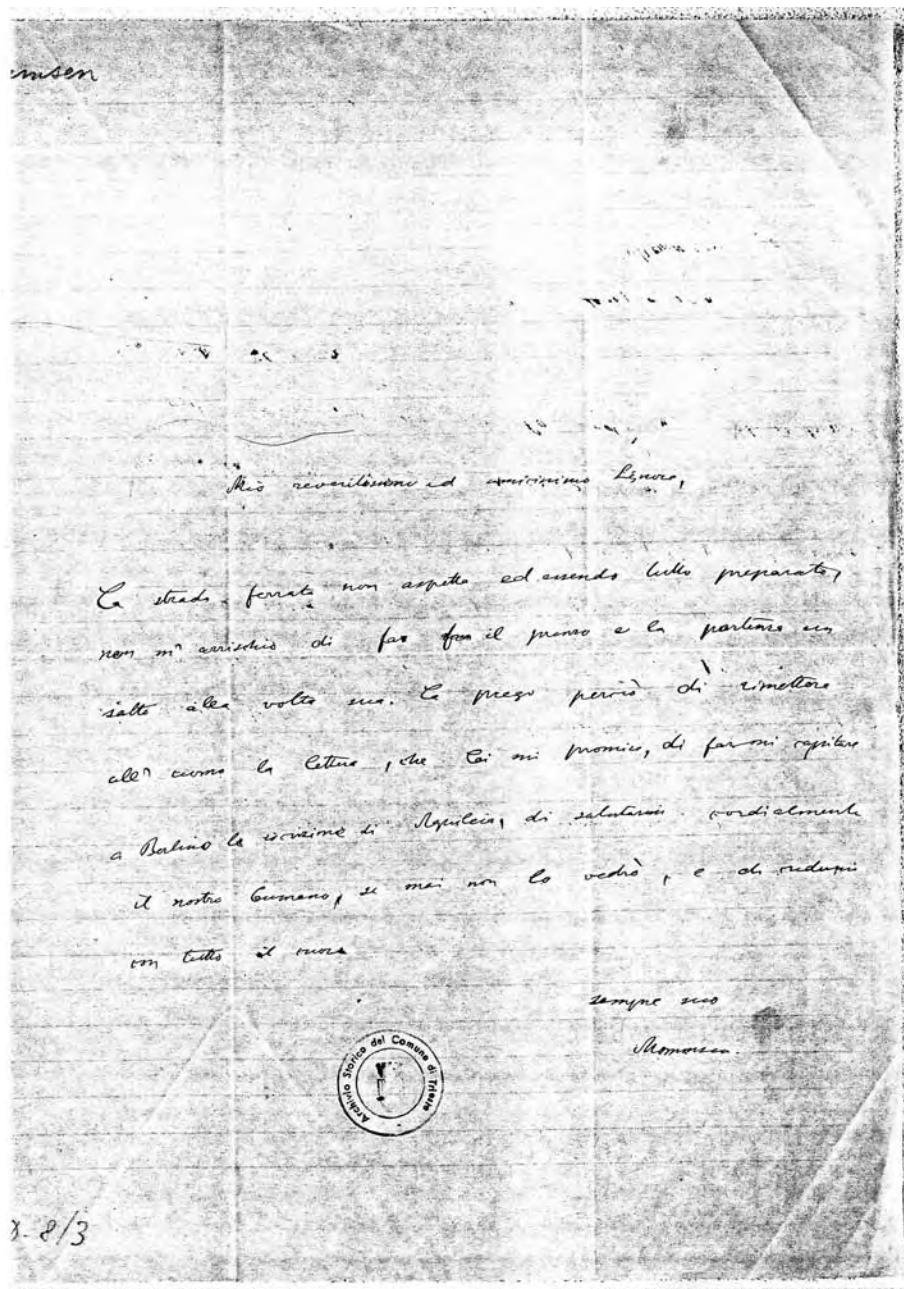 Mio reveritissimo ed amicissimo Signore,
La strada ferrata non aspetta ed essendo tutto preparato,
non m' arrischio di far fra il pranzo e la partenza un
salto alla volta sua. La prego perciò di rimettere
all' uomo la lettera, che Lei mi promise, di farmi capitare
a Berlino la iscrizione di Aquileia, di salutarmi cordialmente
il nostro Cumano, se mai non lo vedrò, e di credermi
con tutto il cuore
sempre suo
Mommsen.
Archivio Storico del Comune di Trieste
8/3